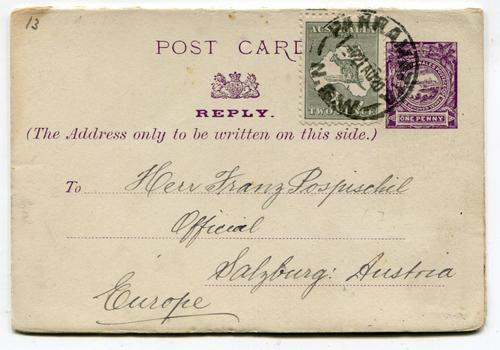 13
POST CARD
AUSTRALIA
TWO PENCE
PARRAMATTA
N.S.W
ONE PENNY
REPLY.
(The Address only to be written on this side.)
To Herr Franz Pospischil
Official
Salzburg: Austria
Europe